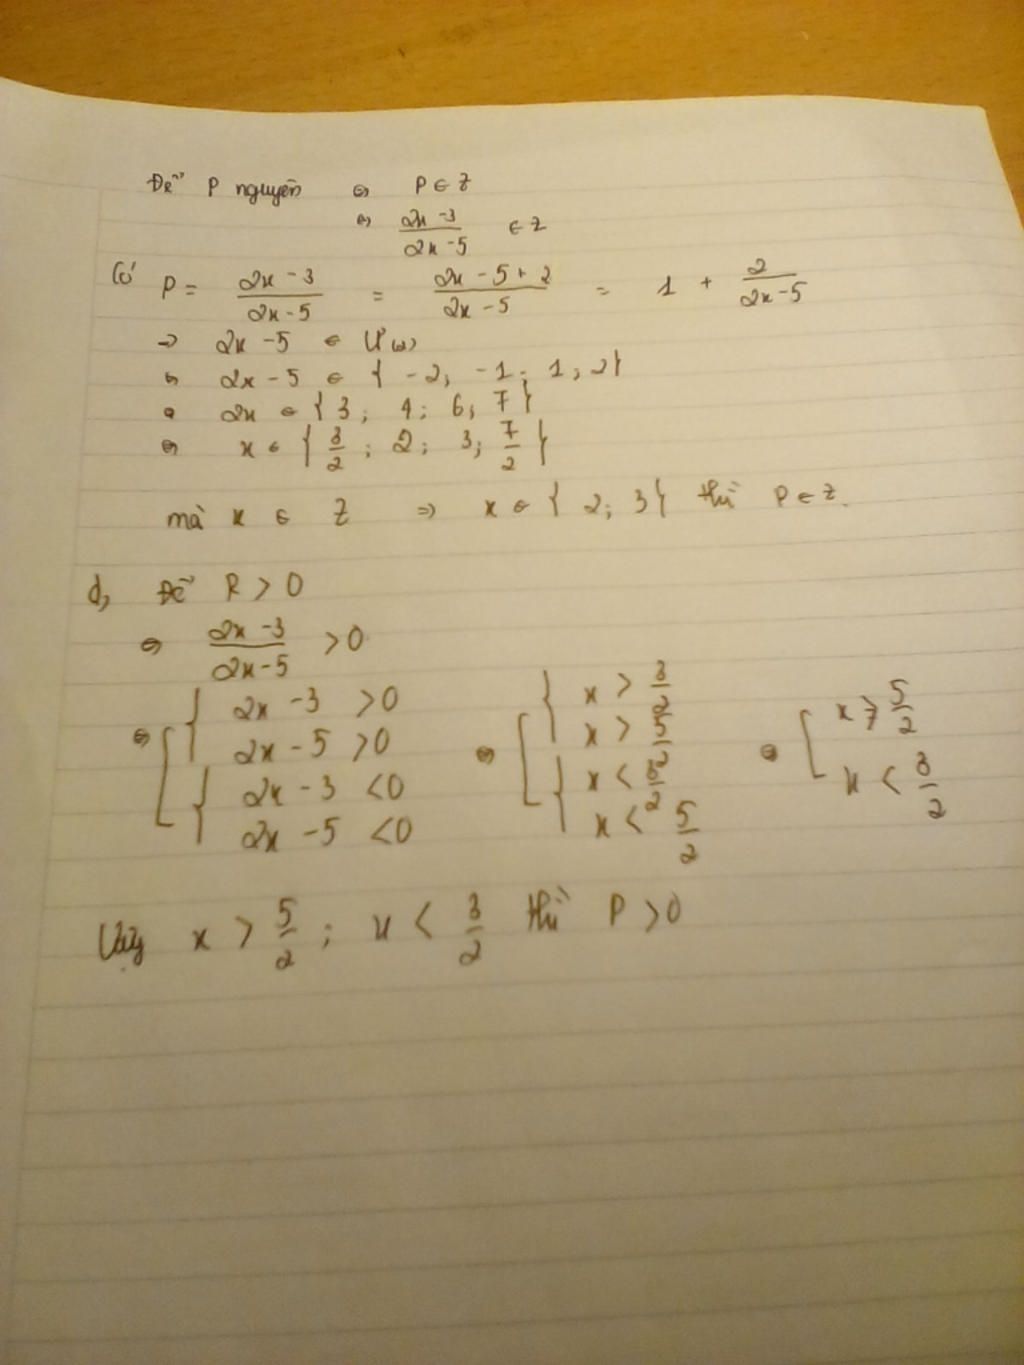 Để P nguyên ⇔ P ∈ Z
⇔ (2x - 3)/(2x - 5) ∈ Z
Có P = (2x - 3)/(2x - 5) = (2x - 5 + 2)/(2x - 5) = 1 + 2/(2x - 5)
⇒ 2x - 5 ∈ Ư(2)
⇔ 2x - 5 ∈ { -2; -1; 1; 2}
⇔ 2x ∈ { 3; 4; 6; 7 }
⇔ x ∈ { 3/2 ; 2; 3; 7/2 }
mà x ∈ Z ⇒ x ∈ { 2; 3 } thì P ∈ Z.
d, Để P > 0
⇔ (2x - 3)/(2x - 5) > 0
⇔ [ { 2x - 3 > 0 ⇔ [ { x > 3/2 ⇔ [ x > 5/2
2x - 5 > 0 x > 5/2
{ 2x - 3 < 0 { x < 3/2 x < 3/2
2x - 5 < 0 x < 5/2
Vậy x > 5/2 ; x < 3/2 thì P > 0